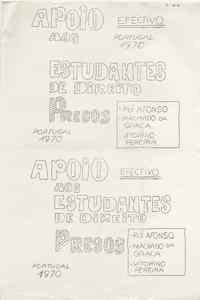 APOIO EFECTIVO
AOS
PORTUGAL
1970
ESTUDANTES
DE DIREITO
PRESOS
- RUI AFONSO
- MACHADO DA
GRAÇA
- VITORINO
PEREIRA
PORTUGAL
1970
APOIO EFECTIVO
AOS
ESTUDANTES
DE DIREITO
PRESOS
- RUI AFONSO
- MACHADO DA
GRAÇA
- VITORINO
PEREIRA
PORTUGAL
1970